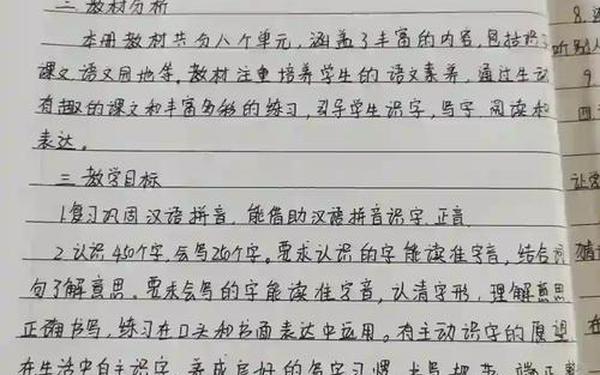 二 教材分析
本册教材共分八个单元,涵盖了丰富的内容,包括识
课文 语文园地等。教材注重培养学生的语文素养,通过生动
有趣的课文和丰富多彩的练习,引导学生识字,写字 阅读和
表达。
三 教学目标
1.复习巩固汉语拼音,能借助汉语拼音识字,正音
2.认识450个字,会写250个字。要求认识的字能读准字音,结合词
句了解意思。要求会写的字能读准字音,认清字形,理解意思
正确书写,练习在口头和书面表达中运用。有主动识字的愿望
在生活中自主识字,养成良好的写字习惯,书写规范,端正整
8.
听别人
9
四